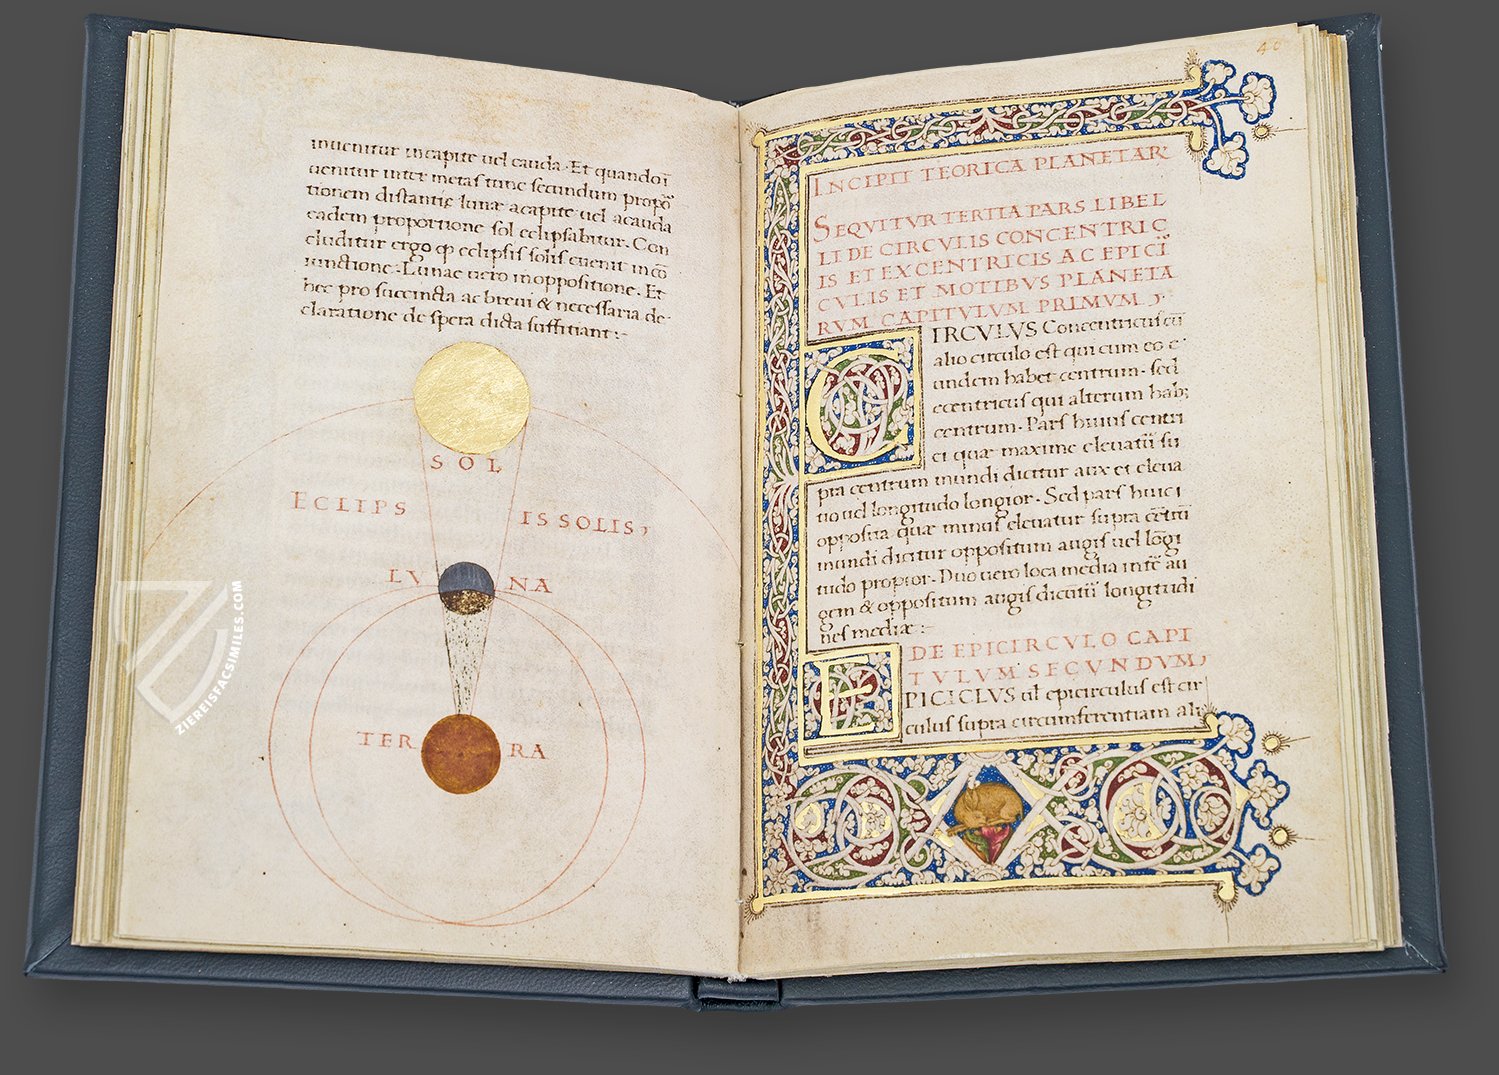 inuenitur incapite uel cauda. Et quando ī
uenitur inter metas tunc secundum propo᷑
tionem distantie lunæ acapite uel acauda
eadem proportione sol eclipsabitur. Con
cluditur ergo ꝙ eclipsis solis euenit in cō
iunctione. Lunae uero in oppositione. Et
hec pro succincta ac breui & necessaria de-
claratione de spera dicta suffitiant:-
SOL
ECLIPS IS SOLIS,
LV NA
TER RA
ZIEREISFACSIMILES.COM
40
INCIPIT TEORICA PLANETAR
SEQVITVR TERTIA PARS LIBEL
LI DE CIRCVLIS CONCENTRIC
IS ET EXCENTRICIS AC EPICI
CVLIS ET MOTIBVS PLANETA
RVM CAPITVLVM PRIMVM,
CIRCVLVS Concentricus cū
alio circulo est qui cum eo e-
undem habet centrum. sed
eccentricus qui alterum hab;
centrum. Pars huius centri
ci quæ maxime eleuatū su
pra centrum mundi dicitur aux et eleua
tio uel longitudo longior. Sed pars huic
opposita quæ minus eleuatur supra cētrū
mundi dicitur oppositum augis uel lōgi
tudo propior. Duo uero loca media inte᷑ au
gem & oppositum augis dicūtur longitudi
nes mediæ:-
DE EPICIRCVLO CAPI
TVLVM SECVNDVM,
EPICICLVS uel epicirculus est cir
culus supra circumferentiam ali